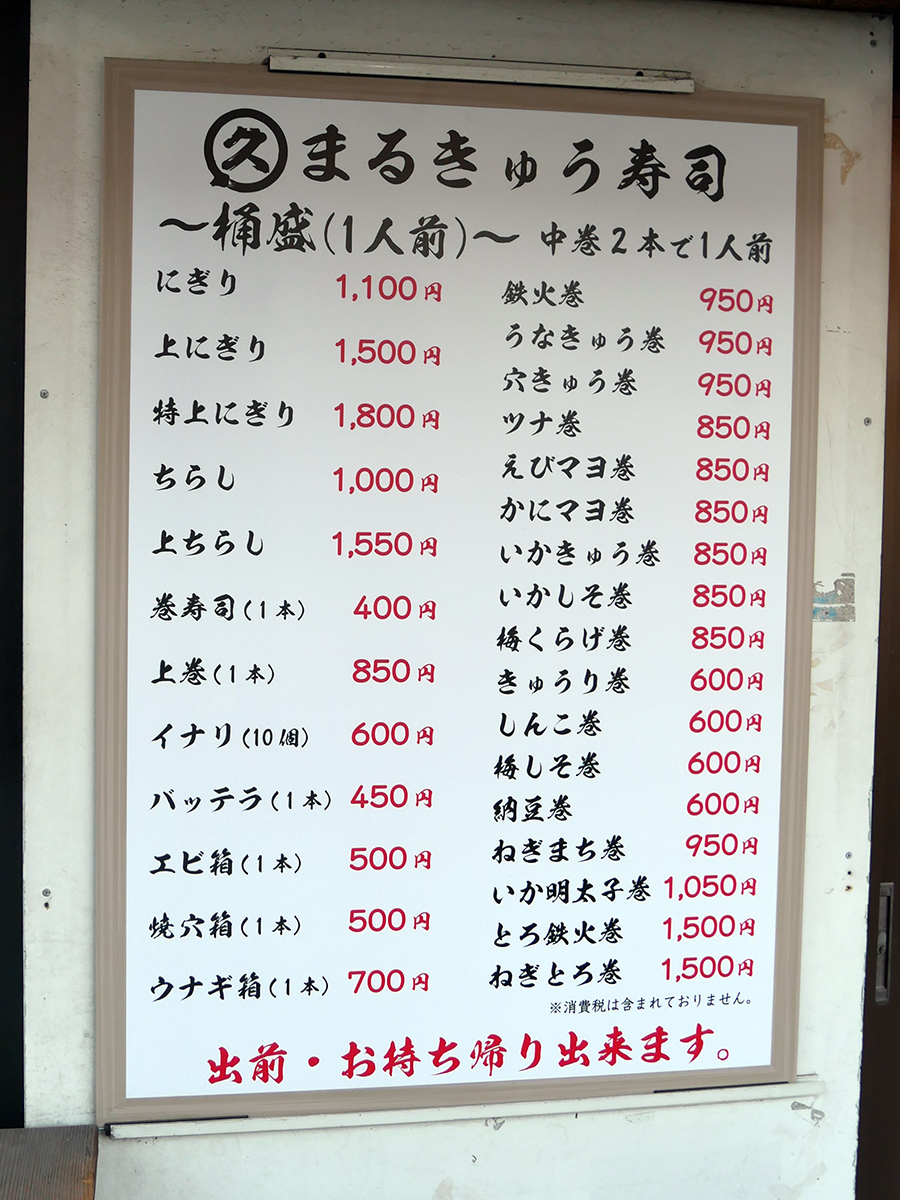 久 まるきゅう寿司
～桶盛(1人前)～ 中巻2本で1人前
にぎり 1,100円
上にぎり 1,500円
特上にぎり 1,800円
ちらし 1,000円
上ちらし 1,550円
巻寿司(1本) 400円
上巻(1本) 850円
イナリ(10個) 600円
バッテラ(1本) 450円
エビ箱(1本) 500円
焼穴箱(1本) 500円
ウナギ箱(1本) 700円
鉄火巻 950円
うなきゅう巻 950円
穴きゅう巻 950円
ツナ巻 850円
えびマヨ巻 850円
かにマヨ巻 850円
いかきゅう巻 850円
いかしそ巻 850円
梅くらげ巻 850円
きゅうり巻 600円
しんこ巻 600円
梅しそ巻 600円
納豆巻 600円
ねぎまち巻 950円
いか明太子巻 1,050円
とろ鉄火巻 1,500円
ねぎとろ巻 1,500円
※消費税は含まれておりません。
出前・お持ち帰り出来ます。